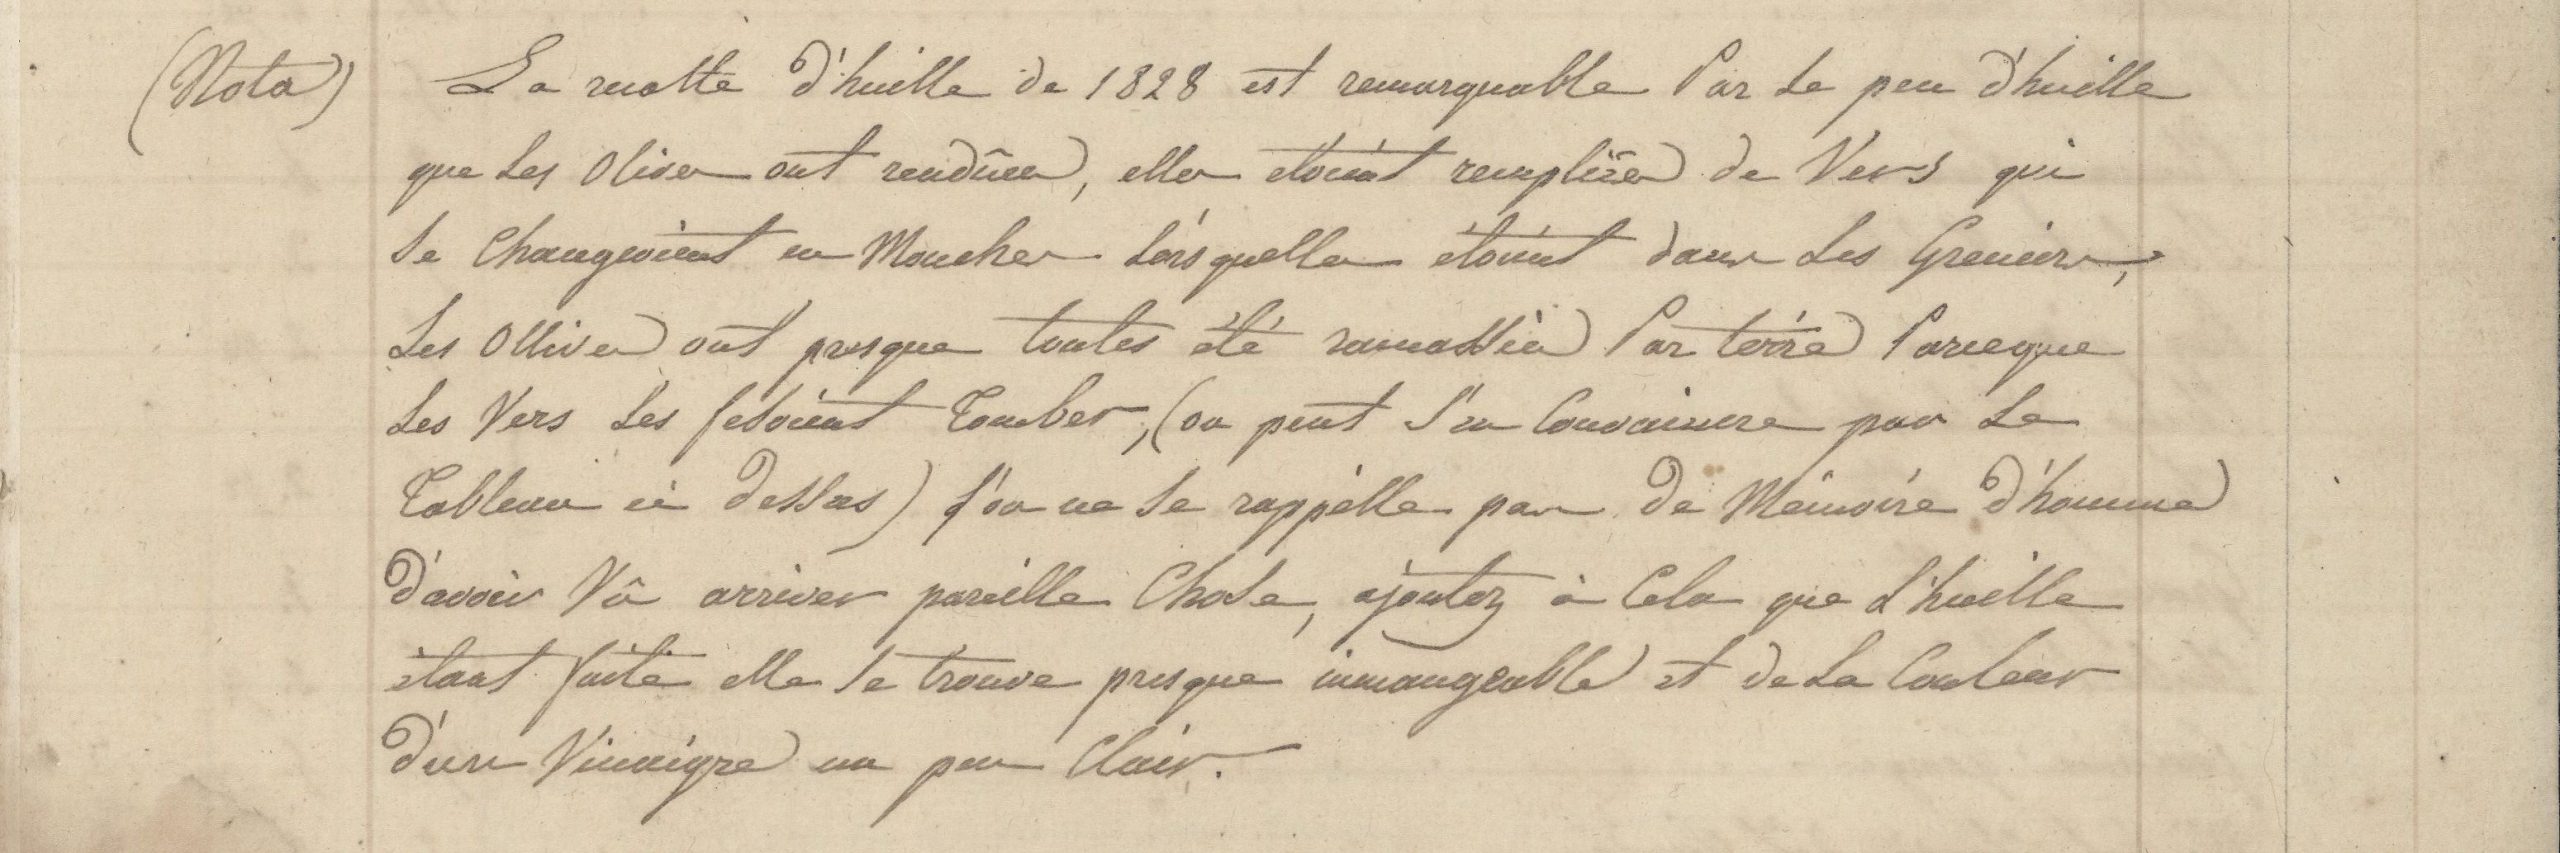 (Nota) La recolte d'huille de 1828 est remarquable Par Le peu d'huille
que Les Olives ont rendûes, elles etoient remplies de Vers qui
se Changeoient en Mouches Lors quelles étoient dans Les Greniers,
Les Ollives ont presque toutes été ramassées Par terre Parceque
Les Vers Les fesoient Tomber, (on peut s'en Convaincre par Le
Tableau ci dessus) l'on ne se rappelle pas de Mémoire d'homme
D'avoir Vû arriver pareille Chose, ajoutez à Cela que L'huille
étant faite elle se trouve presque immangeable et de La Couleur
D'un Vinaigre un peu Clair.